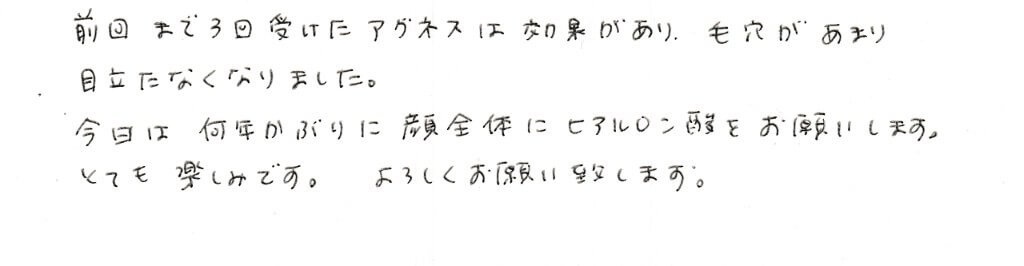 前回まで3回受けたアグネスは効果があり、毛穴があまり
目立たなくなりました。
今日は何年かぶりに顔全体にヒアルロン酸をお願いします。
とても楽しみです。 よろしくお願い致します。